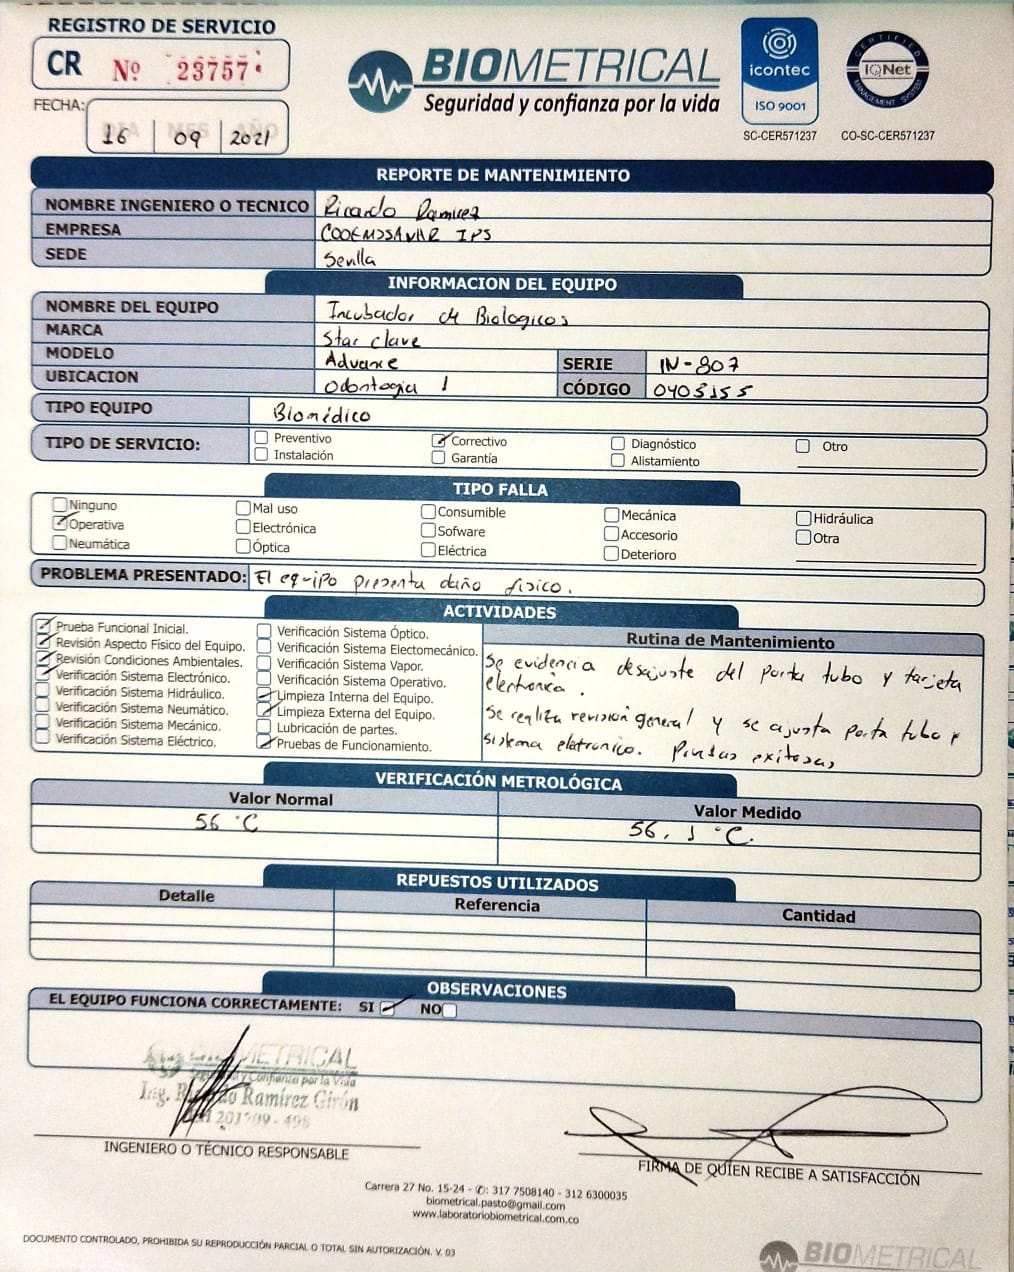 REGISTRO DE SERVICIO
CR Nº 23757
FECHA: DIA MES AÑO
16 09 2021
BIOMETRICAL
Seguridad y confianza por la vida
icontec
ISO 9001
SC-CER571237
CERTIFIED
IQNet
MANAGEMENT SYSTEM
CO-SC-CER571237
REPORTE DE MANTENIMIENTO
NOMBRE INGENIERO O TECNICO Ricardo Ramirez
EMPRESA COOEMSSANAR IPS
SEDE Sevilla
INFORMACION DEL EQUIPO
NOMBRE DEL EQUIPO Incubador de Biologicos
MARCA Star clave
MODELO Advance SERIE IN-807
UBICACION Odontogia 1 CÓDIGO 0405155
TIPO EQUIPO Biomédico
TIPO DE SERVICIO: Preventivo Correctivo Diagnóstico Otro
Instalación Garantía Alistamiento
TIPO FALLA
Ninguno Mal uso Consumible Mecánica Hidráulica
Operativa Electrónica Sofware Accesorio Otra
Neumática Óptica Eléctrica Deterioro
PROBLEMA PRESENTADO: El equipo presenta daño fisico.
ACTIVIDADES
Prueba Funcional Inicial.
Revisión Aspecto Físico del Equipo.
Revisión Condiciones Ambientales.
Verificación Sistema Electrónico.
Verificación Sistema Hidráulico.
Verificación Sistema Neumático.
Verificación Sistema Mecánico.
Verificación Sistema Eléctrico.
Verificación Sistema Óptico.
Verificación Sistema Electomecánico.
Verificación Sistema Vapor.
Verificación Sistema Operativo.
Limpieza Interna del Equipo.
Limpieza Externa del Equipo.
Lubricación de partes.
Pruebas de Funcionamiento.
Rutina de Mantenimiento
Se evidencia desajuste del porta tubo y tarjeta
electronica.
Se realiza revision general y se ajusta porta tubo y
sistema eletronico. Pruebas exitosas
VERIFICACIÓN METROLÓGICA
Valor Normal Valor Medido
56 °C 56,1 °C.
REPUESTOS UTILIZADOS
Detalle Referencia Cantidad
OBSERVACIONES
EL EQUIPO FUNCIONA CORRECTAMENTE: SI NO
BIOMETRICAL
Seguridad y Confianza por la Vida
Ing. Ricardo Ramírez Girón
INGENIERO O TÉCNICO RESPONSABLE
FIRMA DE QUIEN RECIBE A SATISFACCIÓN
Carrera 27 No. 15-24 - ✆: 317 7508140 - 312 6300035
biometrical.pasto@gmail.com
www.laboratoriobiometrical.com.co
DOCUMENTO CONTROLADO, PROHIBIDA SU REPRODUCCIÓN PARCIAL O TOTAL SIN AUTORIZACIÓN. V. 03
BIOMETRICAL